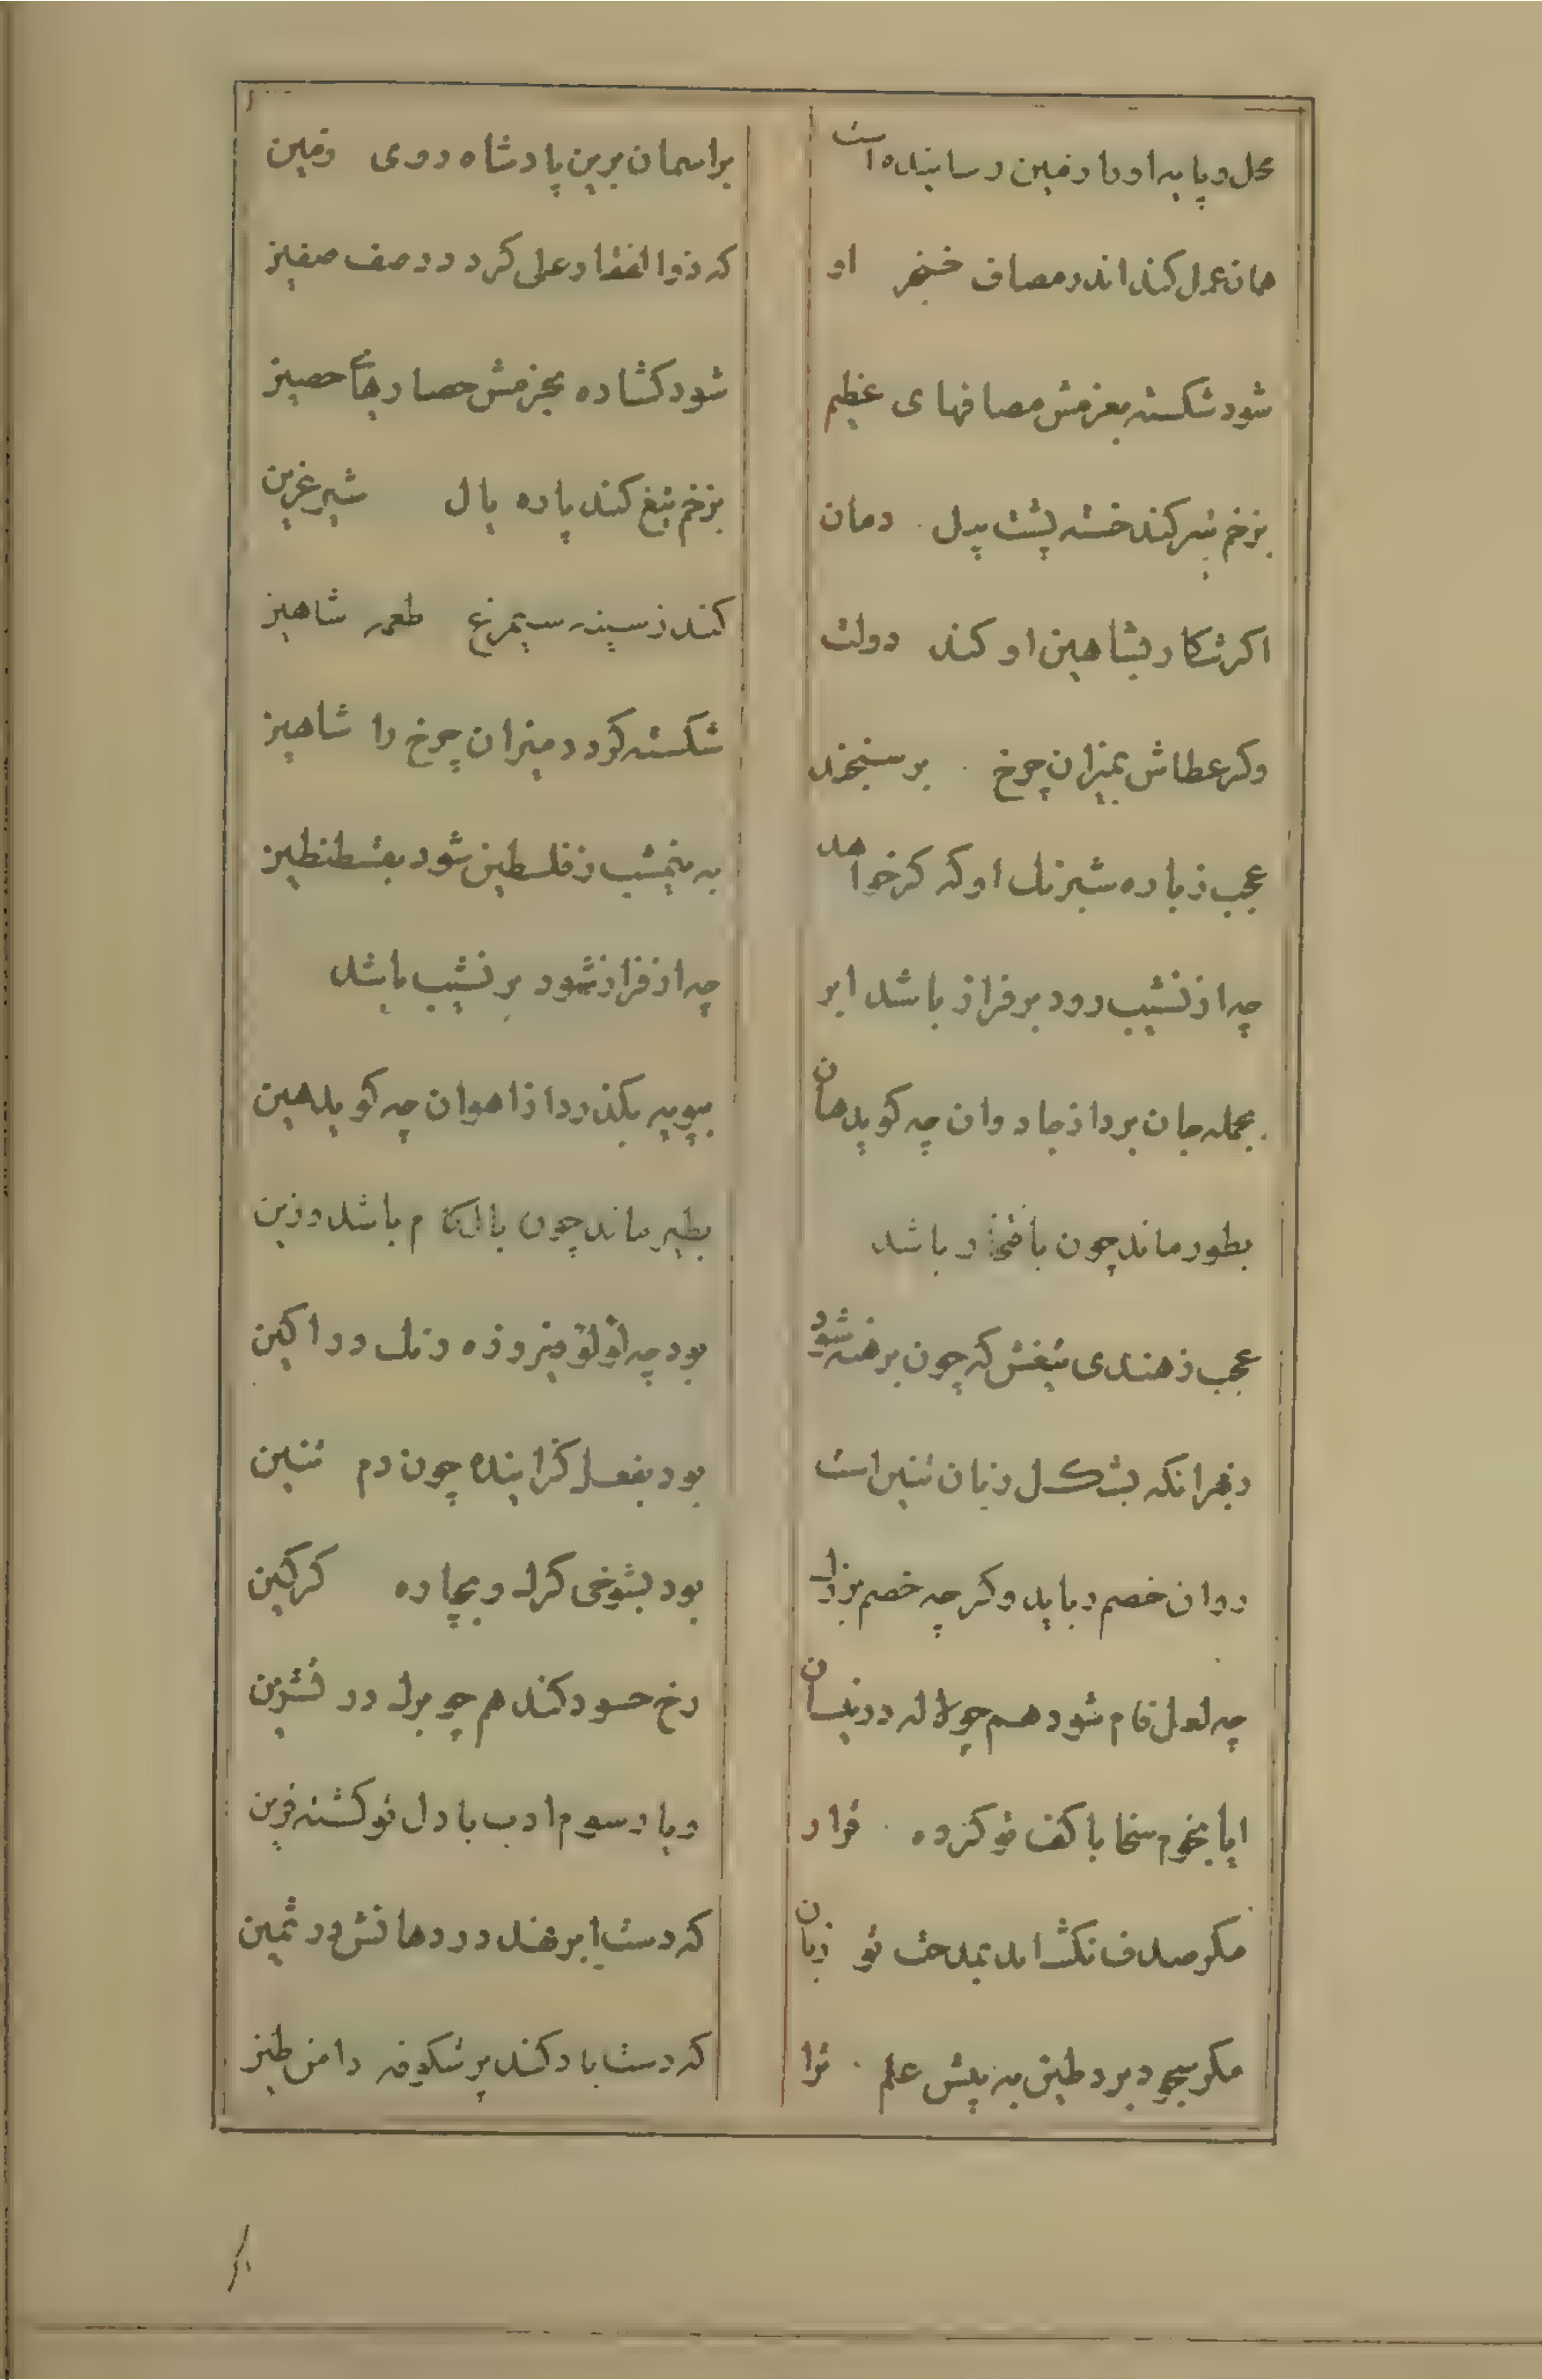 محل و پایه او را زمین رسانیده است
براسمان برین پادشاه روی زمین
همان عمل کند اندر مصاف خنجر او
که ذوالفقار علی کرد در صف صفین
شود شکسته بعزمش مصافهای عظیم
شود کشاده بحزمش حصارهای حصین
بزخم تیر کند خسته پشت پیل دمان
بزخم تیغ کند پاره یال شیر عرین
اکر شکار بشاهین او کند دولت
کند ز سینه سیمرغ طعمه شاهین
وکر عطاش بمیزان چرخ برسنجند
شکسته کردد میزان چرخ را شاهین
عجب ز باره شبرنک او که کر خواهد
به نیمشب ز فلسطین شود بقسطنطین
چه از نشیب رود بر فراز باشد ابر
چه از فراز شود بر نشیب باشد
بحمله جان برد از جادوان چه کوید هان
بپویه بکذرد از اهوان چه کوید هین
بطور ماند چون با فخار باشد
بطیر ماند چون با لکام باشد و زین
عجب ز هندی تیغش که چون برهنه شود
بود چه لولو فیروزه رنک در اکین
ز بهر انکه بشکل زبان تنین است
بود بفعل کزاینده چون دم تنین
روان خصم رباید وکر چه خصم بزرک
بود بشوخی کرک و بچاره کرکین
چه لعل فام شود همچو لاله در نیسان
رخ حسود کند همچو برک در تشرین
ایا نجوم سخا با کف تو کرده قرار
و یا رسوم ادب با دل تو کشته قرین
مکر صدف نکشاید بمدحت تو زبان
که دست ابر نهد در دهانش در ثمین
مکر سجود برد طین به پیش علم ترا
که دست باد کند پر شکوفه دامن طین